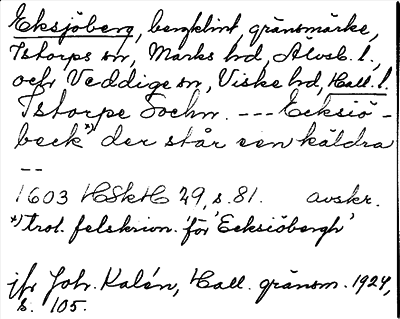 Eksjöberg, bergklint, gränsmärke,
Istorps sn, Marks hd, Älvsb. l.,
och Veddige sn, Viske hd, Hall. l.
Istorpe Sochn. --- Ecksiö-
beck*) der står een käldra
--
1603 HSkH 29, s. 81. avskr.
*) trol. felskrivn. för 'Ecksiöbergh'
jfr Joh. Kalén, Hall. gränsm. 1924,
s. 105.